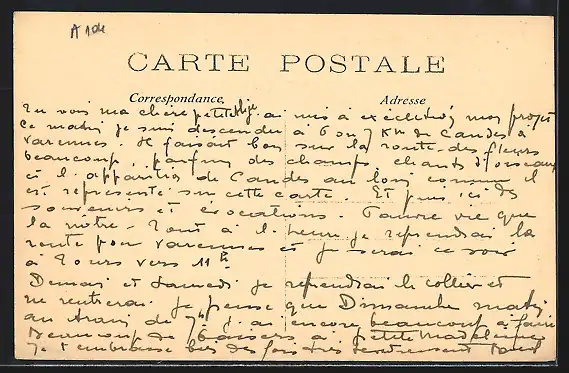 A 104
CARTE POSTALE
Correspondance,
Adresse
Tu vois ma chère petite j'ai mis à exécution mes projets
Ce matin je suis descendu à 6 ou 7 Km de Candes à
Varennes. Il faisait bon sur la route - des fleurs
beaucoup, parfum des champs, chants d'oiseaux
et l'apparition de Candes au loin comme il
est représenté sur cette carte. Et puis ici des
souvenirs et évocations. Pauvre vie que
la nôtre - Tout à l'heure je reprendrai la
route pour Varennes et je serai ce soir
à Tours vers 11h
Demain et Samedi je reprendrai le collier et
ne rentrerai. Je pense que Dimanche matin
au train de 7h J'ai encore beaucoup à faire
Beaucoup de baisers à petite Madeleine
Je t'embrasse bien des fois très tendrement